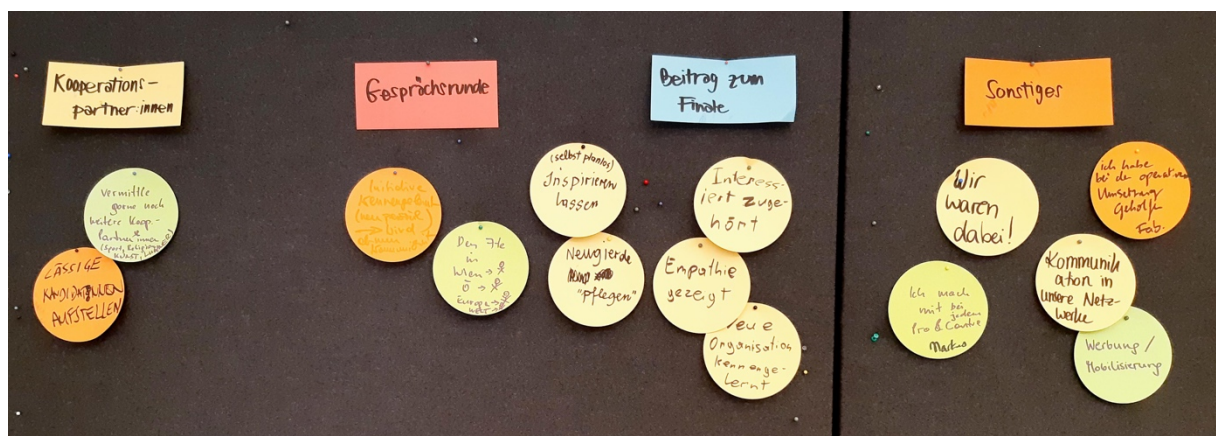 Kooperations-
partner:innen
Vermittle
gerne noch
weitere Koop-
Partner:innen
(Sport, Religion,
KUNST,
LÄSSIGE
KANDIDAT:INNEN
AUFSTELLEN
Gesprächsrunde
Initiative
Den 7te
in
Wien →
Ö →
Europa →
Welt →
Beitrag zum
Finale
(selbst planlos)
Inspirieren
lassen
Neugierde
"pflegen"
Interess-
iert zuge-
hört
Empathie
gezeigt
Neue
Organisation
kennenge-
lernt
Sonstiges
Wir
waren
dabei!
ich habe
bei der operativen
Umsetzung
Geholfen
Fab.
Ich mach
mit bei
jedem
Pro & Contra
Markus
Kommunik
ation in
unsere Netz-
werke
Werbung /
Mobilisierung